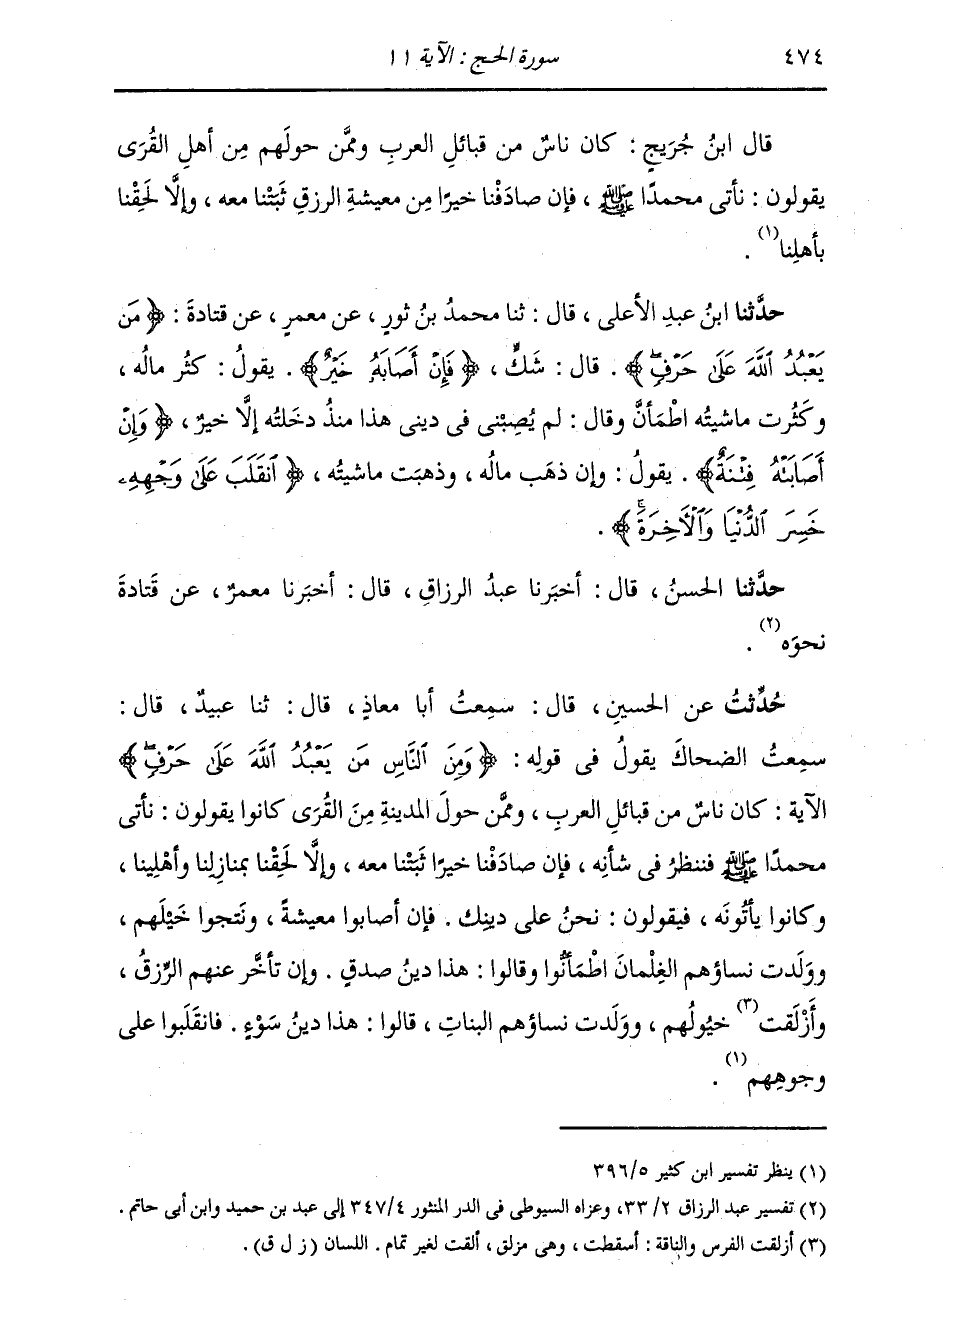 ٤٧٤ سورة الحج : الآية ١١
قال ابنُ جُرَيجٍ : كان ناسٌ من قبائلِ العربِ وممَّن حولَهم مِن أهلِ القُرَى
يقولون : نأتى محمدًا ﷺ ، فإن صادَفْنا خيرًا مِن معيشةِ الرزقِ ثَبَتْنا معه ، وإلَّا لَحِقْنا
بأهلِنا(١) .
حدَّثنا ابنُ عبدِ الأعلى ، قال : ثنا محمدُ بنُ ثورٍ ، عن معمرٍ ، عن قتادةَ : ﴿ مَن
يَعْبُدُ ٱللَّهَ عَلَىٰ حَرْفٍۖ ﴾ . قال : شَكٍّ ، ﴿ فَإِنْ أَصَابَهُۥ خَيْرٌ ﴾ . يقولُ : كثُر مالُه ،
وكَثُرت ماشيتُه اطْمَأنَّ وقال : لم يُصِبْنى فى دينى هذا منذُ دخَلته إلَّا خيرٌ ، ﴿ وَإِنْ
أَصَابَتْهُ فِتْنَةٌ ﴾ . يقولُ : وإن ذهَب مالُه ، وذهبَت ماشيتُه ، ﴿ ٱنقَلَبَ عَلَىٰ وَجْهِهِۦ
خَسِرَ ٱلدُّنْيَا وَٱلْأٓخِرَةَۚ ﴾ .
حدَّثنا الحسنُ ، قال : أخبَرنا عبدُ الرزاقِ ، قال : أخبَرنا معمرٌ ، عن قَتادةَ
نحوَه(٢) .
حُدِّثتُ عن الحسينِ ، قال : سمِعتُ أبا معاذٍ ، قال : ثنا عبيدٌ ، قال :
سمِعتُ الضحاكَ يقولُ فى قولِه : ﴿ وَمِنَ ٱلنَّاسِ مَن يَعْبُدُ ٱللَّهَ عَلَىٰ حَرْفٍۖ ﴾
الآية : كان ناسٌ من قبائلِ العربِ ، وممَّن حولَ المدينةِ مِنَ القُرَى كانوا يقولون : نأتى
محمدًا ﷺ فننظرُ فى شأنِه ، فإن صادَفْنا خيرًا ثَبَتْنا معه ، وإلَّا لَحِقْنا بمنازِلنا وأهْلِينا ،
وكانوا يأتُونَه ، فيقولون : نحنُ على دينِك . فإن أصابوا معيشةً ، ونَتجوا خَيْلَهم ،
وولَدت نساؤهم الغِلْمانَ اطْمَأنُّوا وقالوا : هذا دينُ صدقٍ . وإن تأخَّر عنهم الرِّزقُ ،
وأَزْلَقت(٣) خيُولُهم ، وولَدت نساؤهم البناتِ ، قالوا : هذا دينُ سَوْءٍ . فانقَلَبوا على
وجوهِهم(١) .
(١) ينظر تفسير ابن كثير ٣٩٦/٥
(٢) تفسير عبد الرزاق ٢/ ٣٣، وعزاه السيوطى فى الدر المنثور ٣٤٧/٤ إلى عبد بن حميد وابن أبى حاتم .
(٣) أزلقت الفرس والناقة : أسقطت ، وهى مزلق ، ألقت لغير تمام . اللسان ( ز ل ق ) .